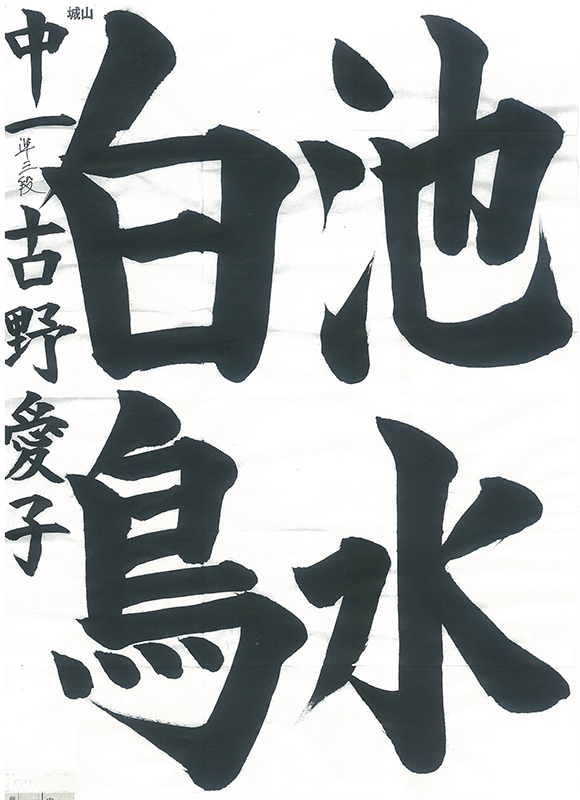 池水
白鳥
中一 準三段 古野愛子
城山